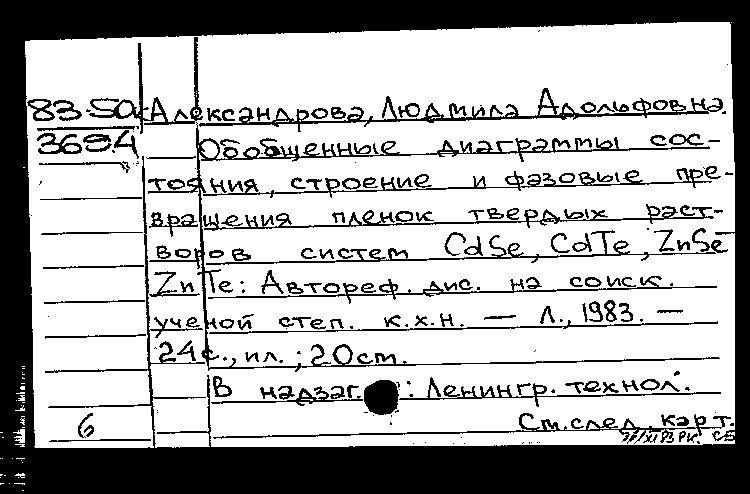 83-5а Александрова, Людмила Адольфовна.
3694 Обобщенные диаграммы сос-
тояния, строение и фазовые пре-
вращения пленок твердых раст-
воров систем CdSe, CdTe, ZnSe
ZnTe: Автореф. дис. на соиск.
ученой степ. к.х.н. — Л., 1983. —
24с., ил.; 20 cm.
В надзаг. : Ленингр. технол.
6 См. след. карт.